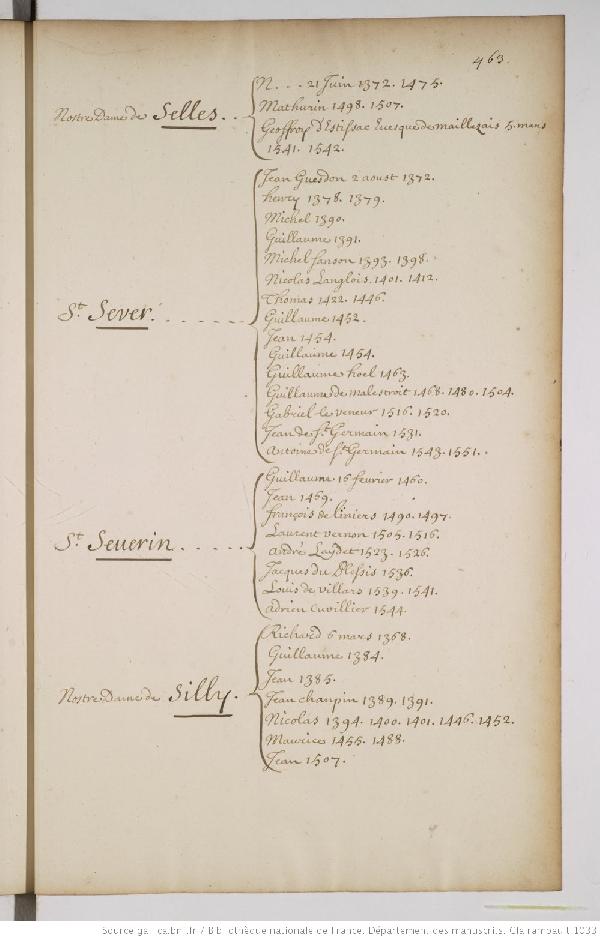 463.
N. . . . 21 Juin 1372. 1475.
Mathurin 1498. 1507.
Nostre Dame de Selles. . .
Geoffroy d'Estissac Euesque de maillezais 5. mars
1541. 1542.
Jean Guesdon 2 aoust 1372.
henry 1378. 1379.
Michel 1390.
Guillaume 1391.
Michel sanson 1393. 1398.
Nicolas Langlois. 1401. 1412.
Thomas 1422. 1446.
St. Sever. . . . . . . .
Guillaume 1452.
Jean 1454.
Guillaume 1454.
Guillaume hoel 1463.
Guillaume de malestroit 1468. 1480. 1504.
Gabriel le veneur 1516. 1520.
Jean de St. Germain 1531.
Antoine de St. Germain 1543. 1551.
Guillaume 16 feurier 1460.
Jean 1469.
françois de liniers 1490. 1497.
Laurent vernon 1505. 1516.
St. Seuerin. . . . . .
André Laydet 1523. 1526.
Jacques du Plessis 1536.
Louis de villars 1539. 1541.
adrien cuvillier 1544.
Richard 6 mars 1368.
Guillaume 1384.
Jean 1385.
Nostre Dame de Silly.
Jean chanpin 1389. 1391.
Nicolas 1394. 1400. 1401. 1446. 1452.
Maurice 1455. 1488.
Jean 1507.
Source gallica.bnf.fr / Bibliothèque nationale de France. Département des manuscrits. Clairambault 1033